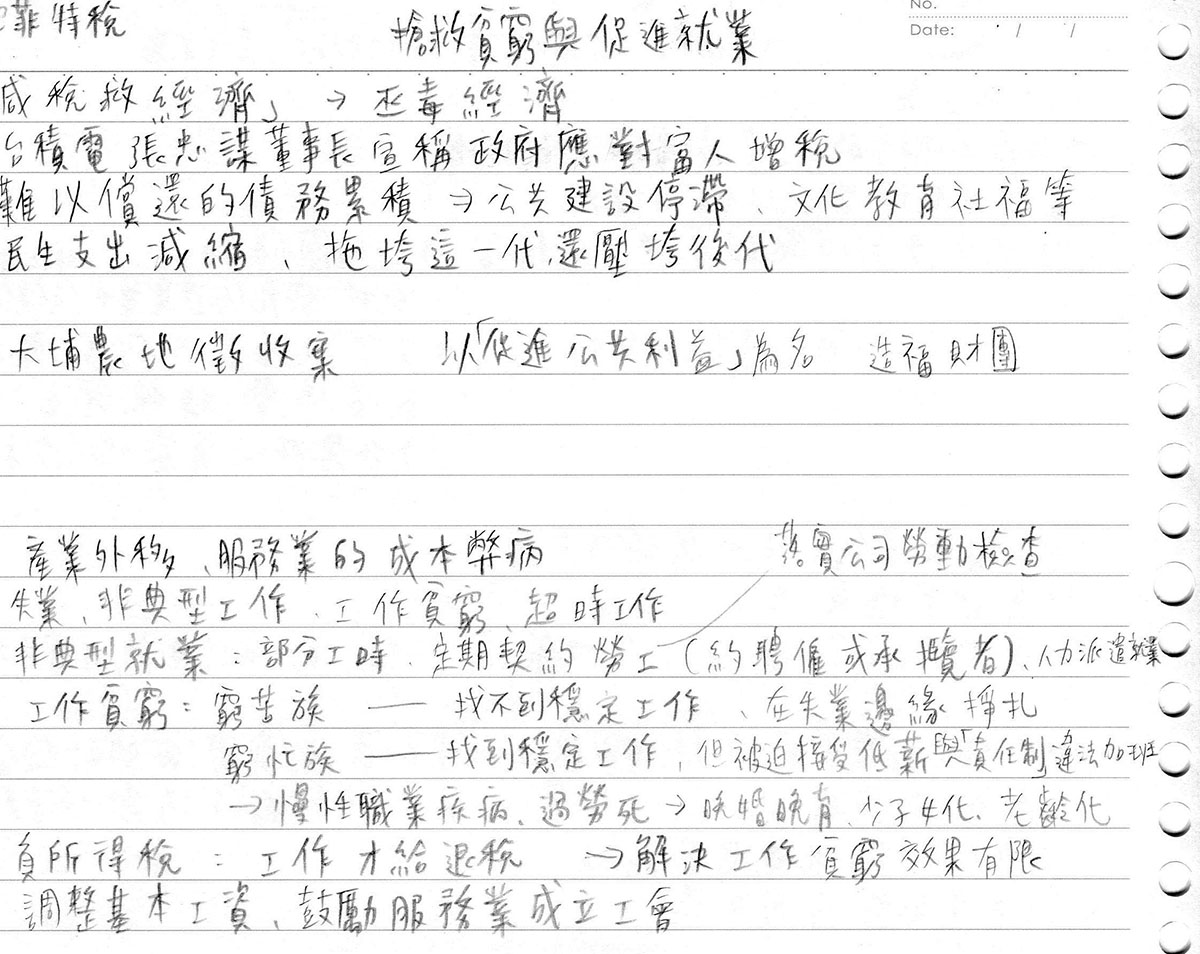 菲特稅
搶救貧窮與促進就業
No.
Date: / /
減稅救經濟」 → 荼毒經濟
台積電 張忠謀董事長宣稱政府應對富人增稅
難以償還的債務累積 → 公共建設停滯、文化教育社福等
民生支出減縮、拖垮這一代,還壓垮後代
大埔農地徵收案 以「促進公共利益」為名 造福財團
產業外移、服務業的成本弊病 落實公司勞動檢查
失業、非典型工作、工作貧窮、超時工作
非典型就業:部分工時、定期契約勞工(約聘僱或承攬者)、人力派遣就業
工作貧窮:窮苦族 —— 找不到穩定工作、在失業邊緣掙扎
窮忙族 —— 找到穩定工作,但被迫接受低薪與「責任制」違法加班
→ 慢性職業疾病、過勞死 → 晚婚晚育、少子女化、老齡化
負所得稅:工作才給退稅 → 解決工作貧窮效果有限
調整基本工資、鼓勵服務業成立工會